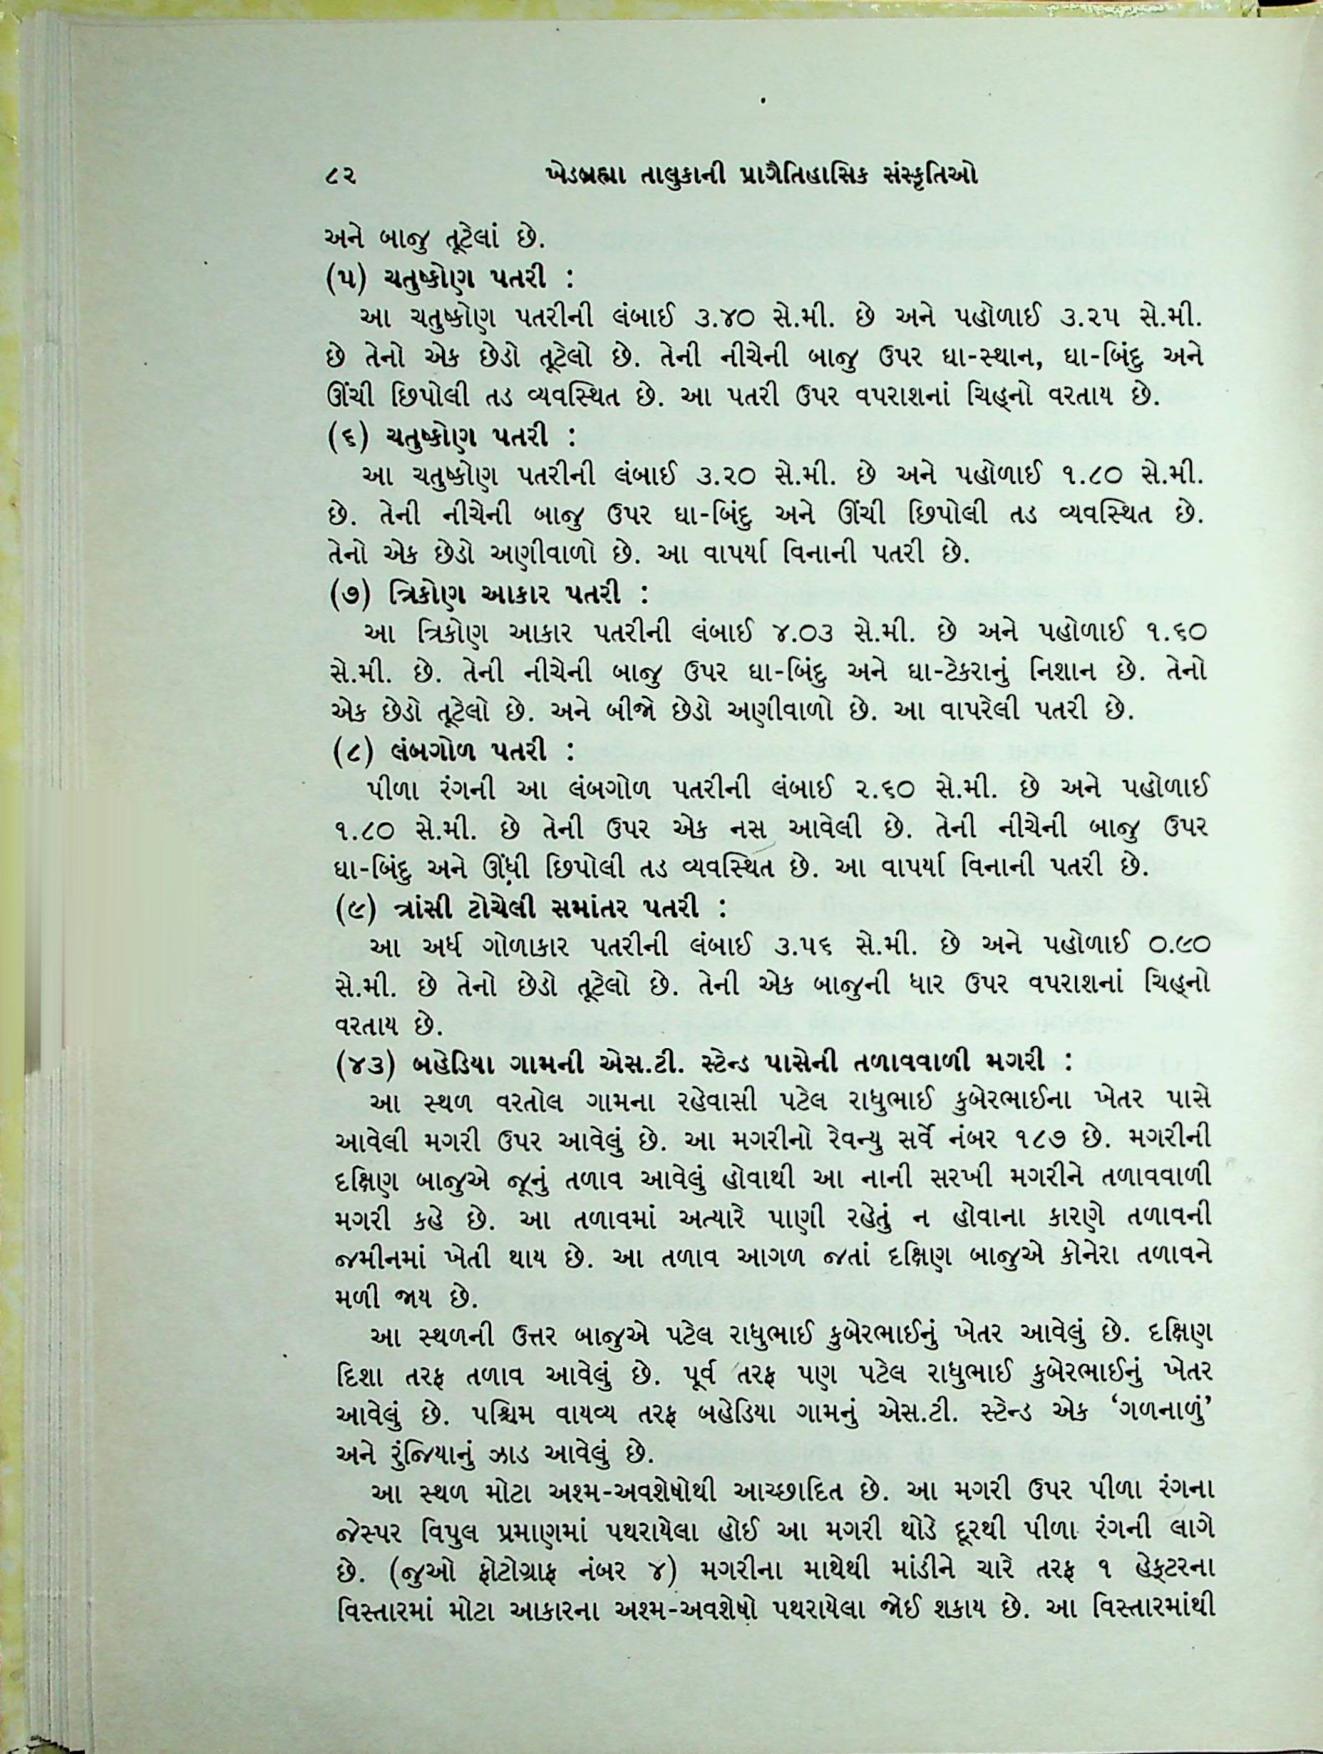 ૮૨ ખેડબ્રહ્મા તાલુકાની પ્રાગૈતિહાસિક સંસ્કૃતિઓ
અને બાજુ તૂટેલાં છે.
(૫) ચતુષ્કોણ પતરી :
આ ચતુષ્કોણ પતરીની લંબાઈ ૩.૪૦ સે.મી. છે અને પહોળાઈ ૩.૨૫ સે.મી.
છે તેનો એક છેડો તૂટેલો છે. તેની નીચેની બાજુ ઉપર ઘા-સ્થાન, ઘા-બિંદુ અને
ઊંચી છિપોલી તડ વ્યવસ્થિત છે. આ પતરી ઉપર વપરાશનાં ચિહ્નો વરતાય છે.
(૬) ચતુષ્કોણ પતરી :
આ ચતુષ્કોણ પતરીની લંબાઈ ૩.૨૦ સે.મી. છે અને પહોળાઈ ૧.૮૦ સે.મી.
છે. તેની નીચેની બાજુ ઉપર ઘા-બિંદુ અને ઊંચી છિપોલી તડ વ્યવસ્થિત છે.
તેનો એક છેડો અણીવાળો છે. આ વાપર્યા વિનાની પતરી છે.
(૭) ત્રિકોણ આકાર પતરી :
આ ત્રિકોણ આકાર પતરીની લંબાઈ ૪.૦૩ સે.મી. છે અને પહોળાઈ ૧.૬૦
સે.મી. છે. તેની નીચેની બાજુ ઉપર ઘા-બિંદુ અને ઘા-ટેકરાનું નિશાન છે. તેનો
એક છેડો તૂટેલો છે. અને બીજો છેડો અણીવાળો છે. આ વાપરેલી પતરી છે.
(૮) લંબગોળ પતરી :
પીળા રંગની આ લંબગોળ પતરીની લંબાઈ ૨.૬૦ સે.મી. છે અને પહોળાઈ
૧.૮૦ સે.મી. છે તેની ઉપર એક નસ આવેલી છે. તેની નીચેની બાજુ ઉપર
ઘા-બિંદુ અને ઊંધી છિપોલી તડ વ્યવસ્થિત છે. આ વાપર્યા વિનાની પતરી છે.
(૯) ત્રાંસી ટોચેલી સમાંતર પતરી :
આ અર્ધ ગોળાકાર પતરીની લંબાઈ ૩.૫૬ સે.મી. છે અને પહોળાઈ ૦.૯૦
સે.મી. છે તેનો છેડો તૂટેલો છે. તેની એક બાજુની ધાર ઉપર વપરાશનાં ચિહ્નો
વરતાય છે.
(૪૩) બહેડિયા ગામની એસ.ટી. સ્ટેન્ડ પાસેની તળાવવાળી મગરી :
આ સ્થળ વરતોલ ગામના રહેવાસી પટેલ રાધુભાઈ કુબેરભાઈના ખેતર પાસે
આવેલી મગરી ઉપર આવેલું છે. આ મગરીનો રેવન્યુ સર્વે નંબર ૧૮૭ છે. મગરીની
દક્ષિણ બાજુએ જૂનું તળાવ આવેલું હોવાથી આ નાની સરખી મગરીને તળાવવાળી
મગરી કહે છે. આ તળાવમાં અત્યારે પાણી રહેતું ન હોવાના કારણે તળાવની
જમીનમાં ખેતી થાય છે. આ તળાવ આગળ જતાં દક્ષિણ બાજુએ કોનેરા તળાવને
મળી જાય છે.
આ સ્થળની ઉત્તર બાજુએ પટેલ રાધુભાઈ કુબેરભાઈનું ખેતર આવેલું છે. દક્ષિણ
દિશા તરફ તળાવ આવેલું છે. પૂર્વ તરફ પણ પટેલ રાધુભાઈ કુબેરભાઈનું ખેતર
આવેલું છે. પશ્ચિમ વાયવ્ય તરફ બહેડિયા ગામનું એસ.ટી. સ્ટેન્ડ એક ‘ગળનાળું’
અને રુંજિયાનું ઝાડ આવેલું છે.
આ સ્થળ મોટા અશ્મ-અવશેષોથી આચ્છાદિત છે. આ મગરી ઉપર પીળા રંગના
જેસ્પર વિપુલ પ્રમાણમાં પથરાયેલા હોઈ આ મગરી થોડે દૂરથી પીળા રંગની લાગે
છે. (જુઓ ફોટોગ્રાફ નંબર ૪) મગરીના માથેથી માંડીને ચારે તરફ ૧ હેક્ટરના
વિસ્તારમાં મોટા આકારના અશ્મ-અવશેષો પથરાયેલા જોઈ શકાય છે. આ વિસ્તારમાંથી